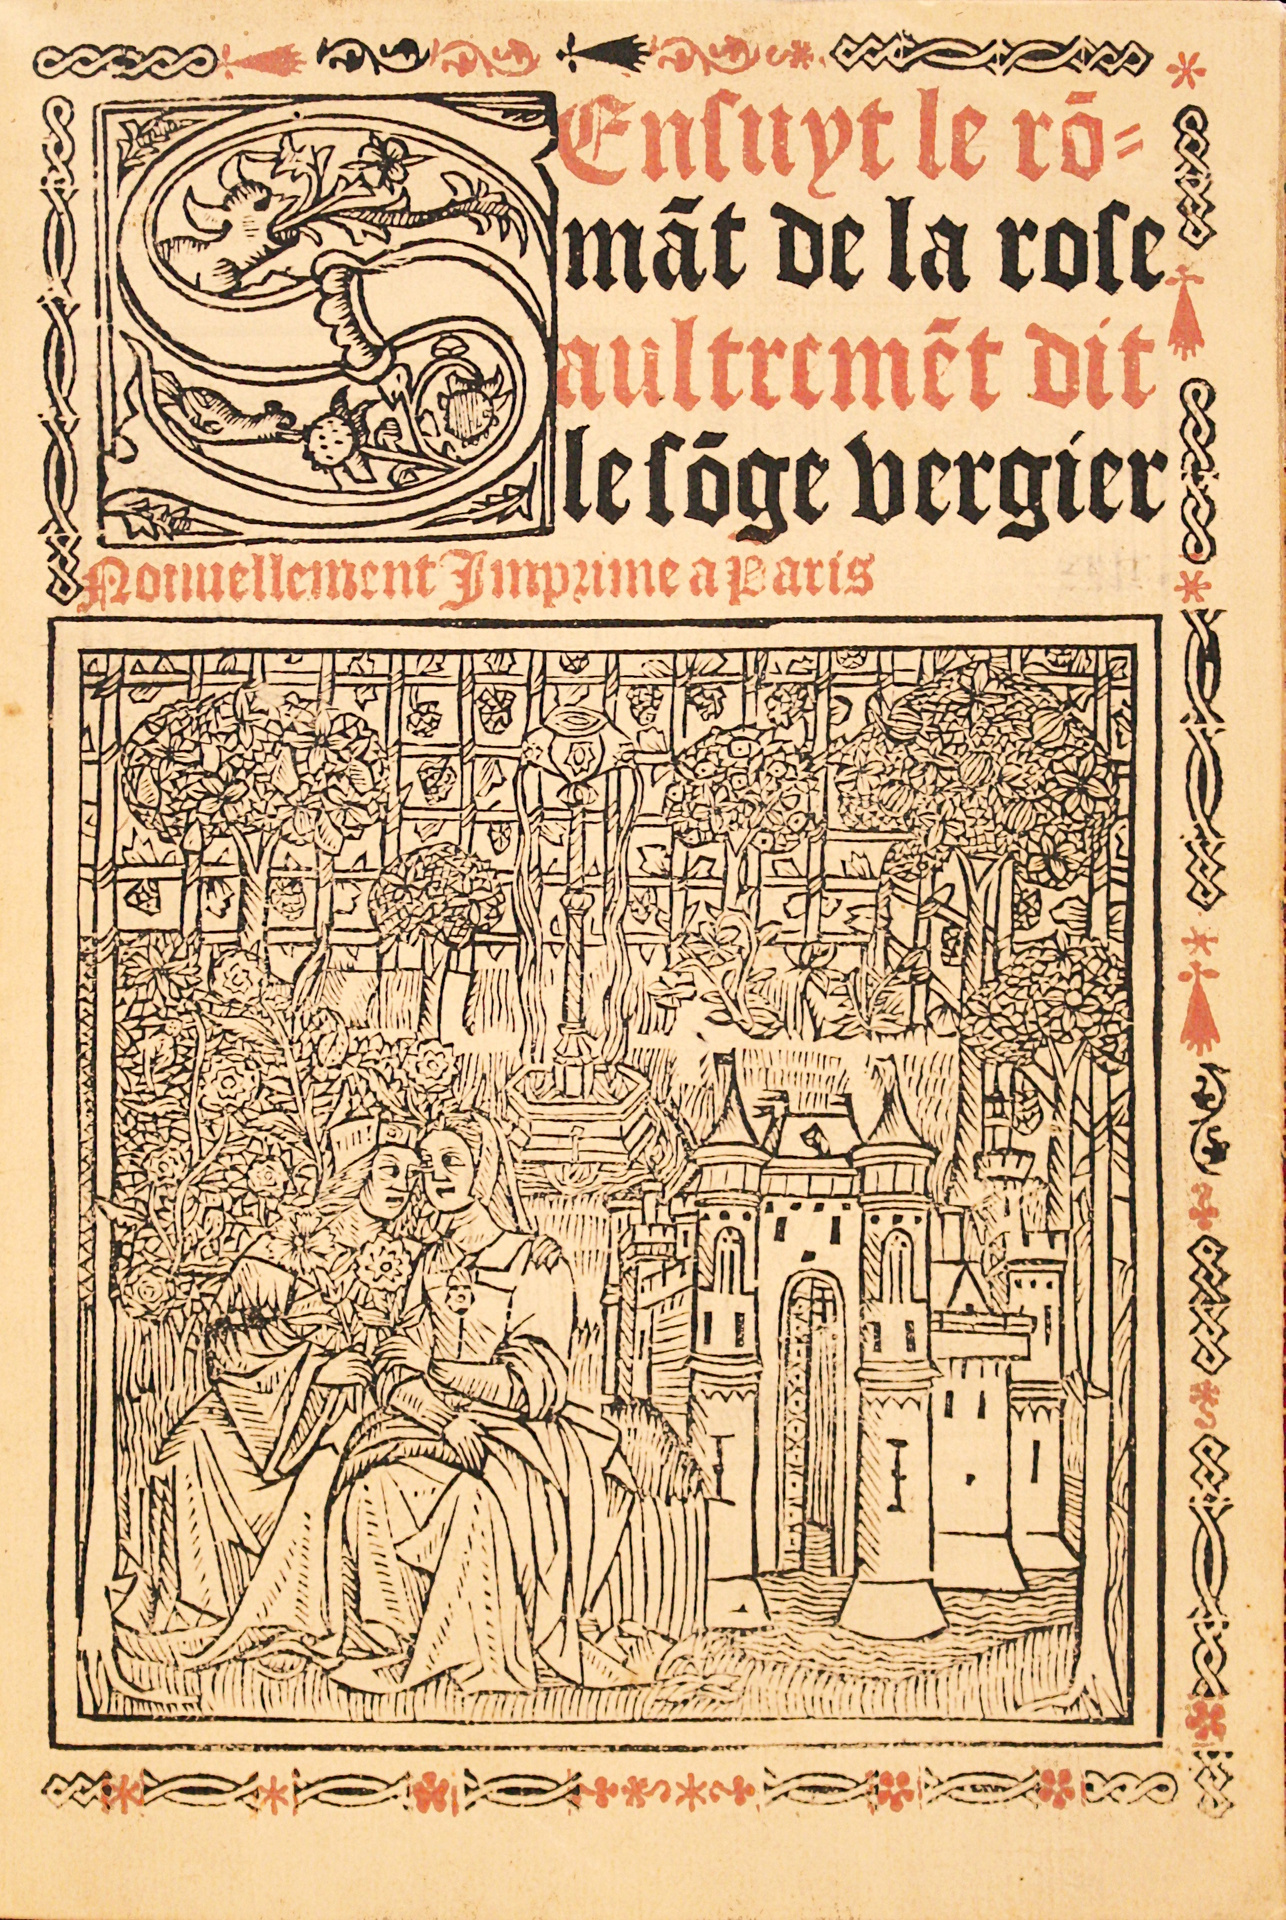 SEnſuyt le rō=
mãt de la roſe
aultremẽt dit
le ſōge vergier
Nouuellement Imprime a Paris